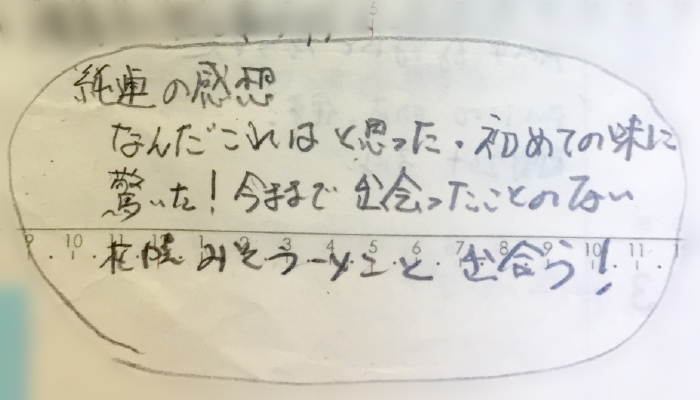 純連の感想
なんだこれはと思った。初めての味に
驚いた!今まで出会ったことのない
札幌みそラーメンと出会う!
9 10 11 12 1 2 3 4 5 6 7 8 9 10 11 1
5